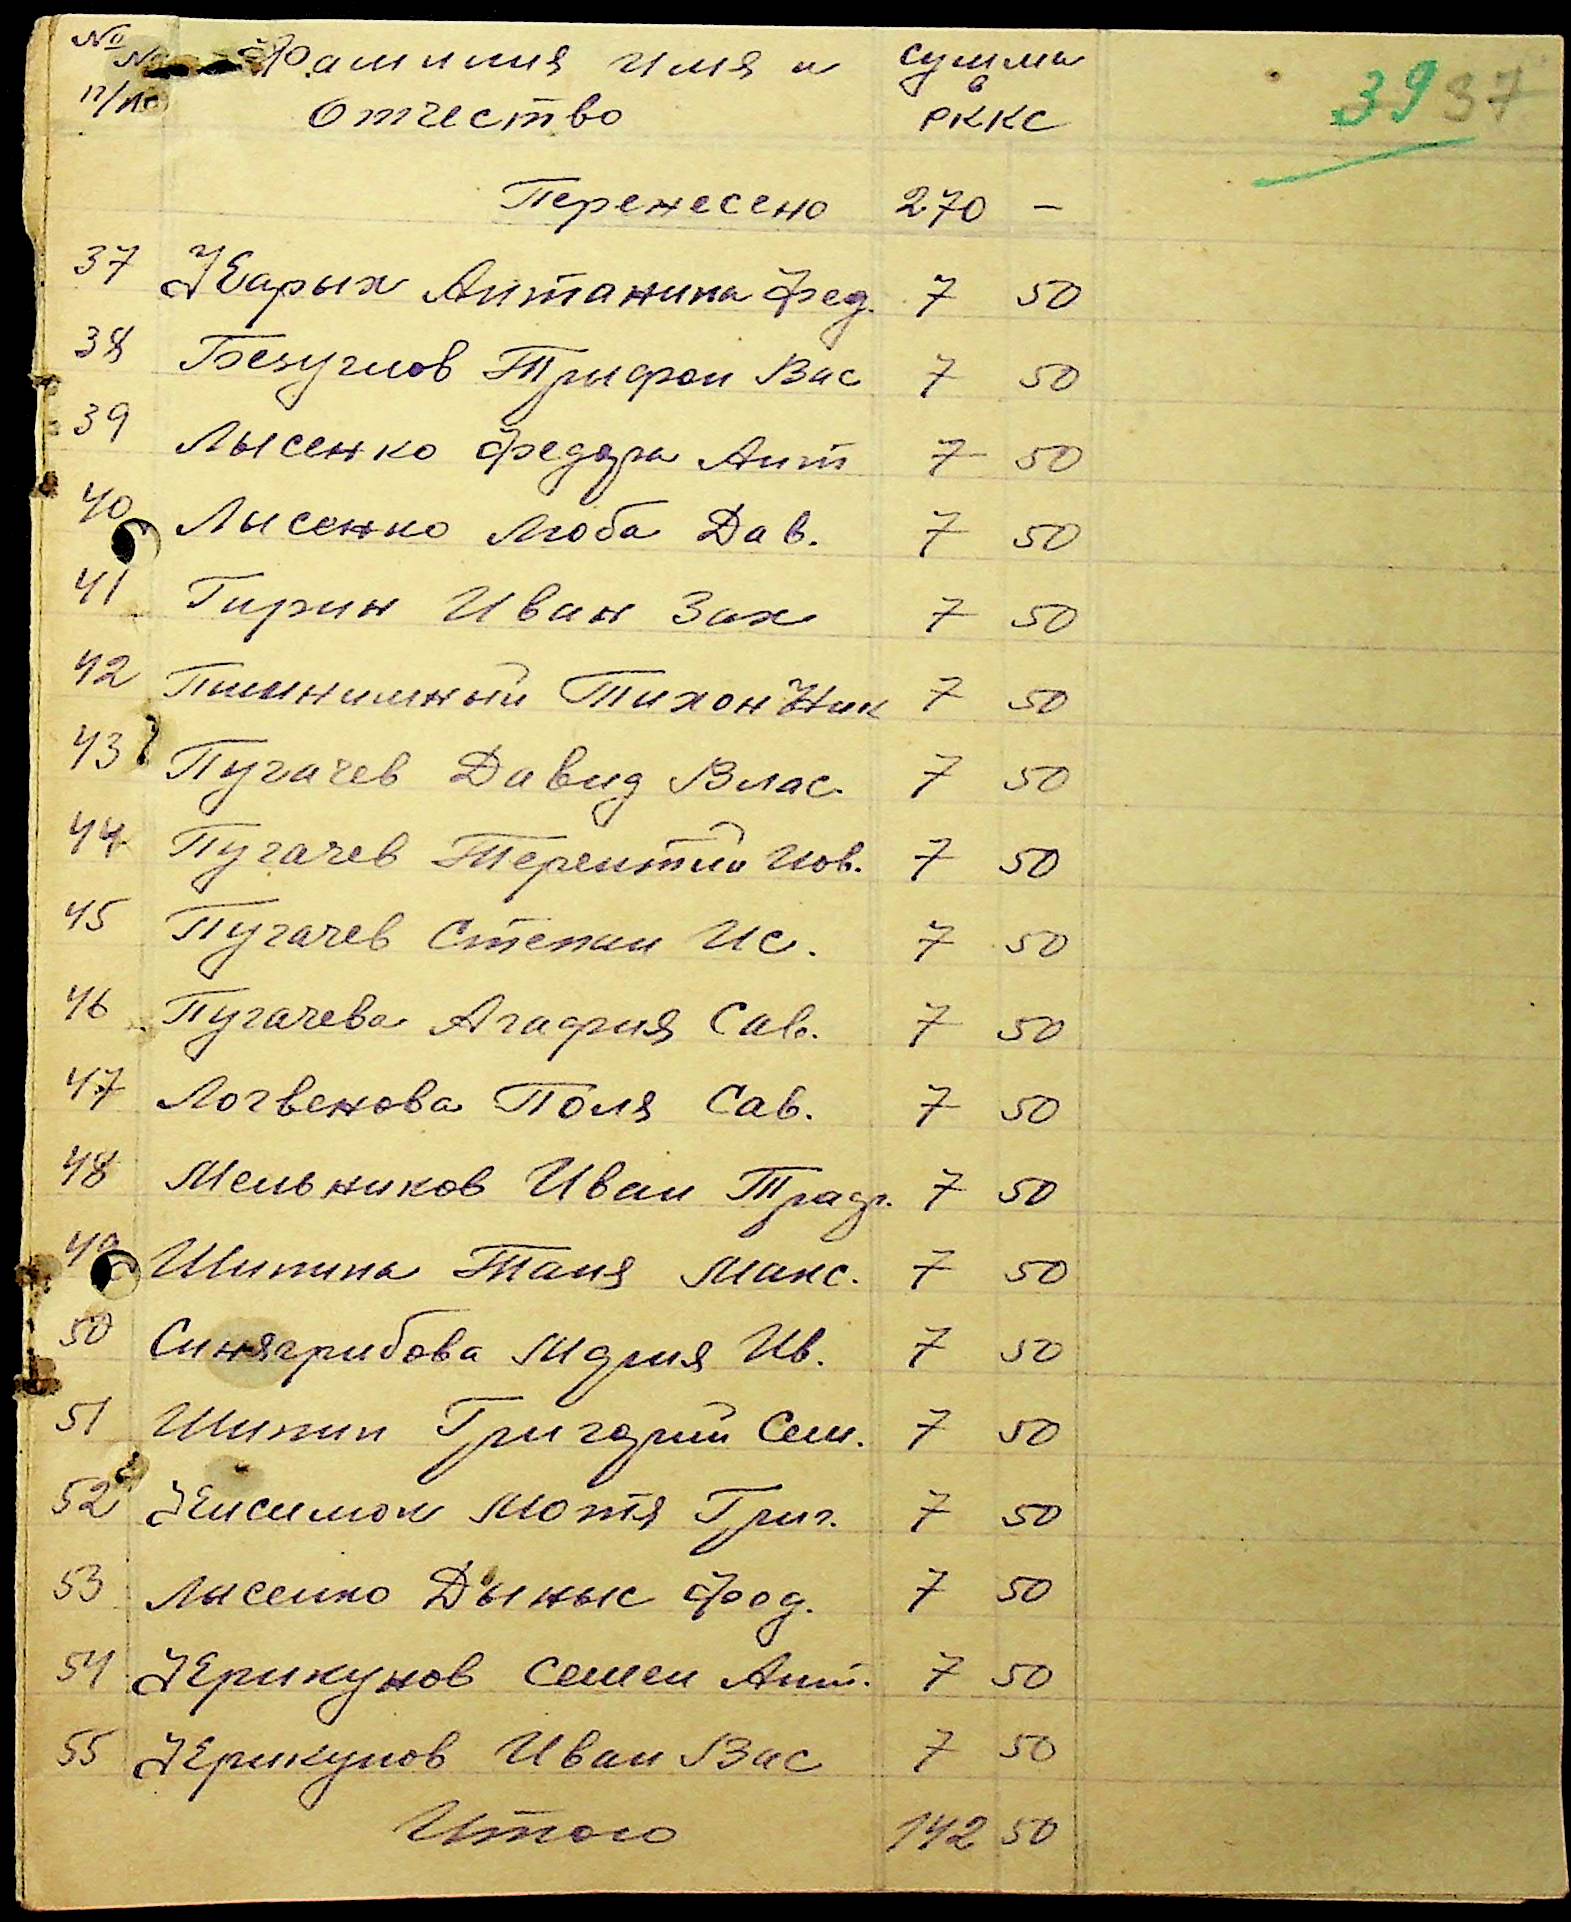 №№ Фамилия имя и сумма
п/по Отчество в РККС
39 37
Перенесено 270 –
37 Жарых Антанина Фед. 7 50
38 Безуглов Трифон Вас 7 50
39 Лысенко Федора Ант 7 50
40 Лысенко Люба Дав. 7 50
41 Гирин Иван Зах 7 50
42 Тихон Ник 7 50
43 Пугачев Давид Влас. 7 50
44 Пугачев Терентий Иов. 7 50
45 Пугачев Степан Ис. 7 50
46 Пугачева Агафия Сав. 7 50
47 Логвенова Поля Сав. 7 50
48 Мельников Иван 7 50
49 Шипина Таня Макс. 7 50
50 Синягрибова Мария Ив. 7 50
51 Шипин Григорий Сем. 7 50
52 Мотя Григ. 7 50
53 Лисенко Дыныс Фод. 7 50
54 Жерикунов Семен Ант. 7 50
55 Жерикунов Иван Вас 7 50
Итого 142 50